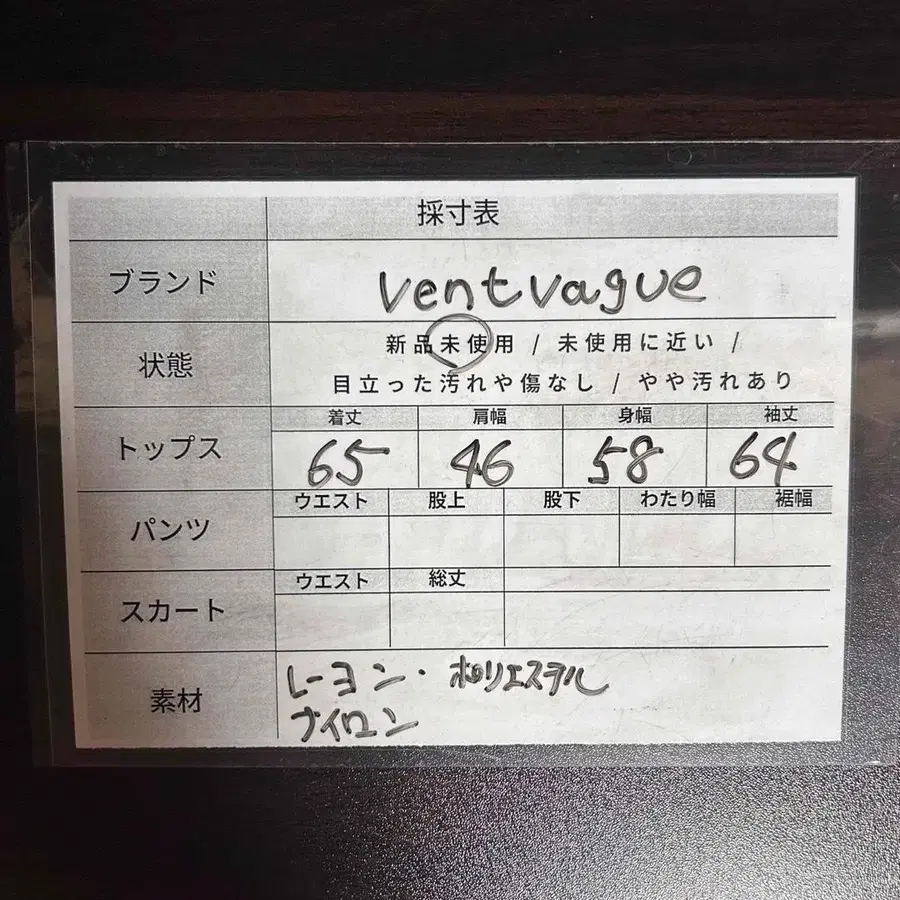 採寸表
ブランド ventvague
状態 新品未使用 / 未使用に近い /
目立った汚れや傷なし / やや汚れあり
着丈 肩幅 身幅 袖丈
トップス 65 46 58 64
ウエスト 股上 股下 わたり幅 裾幅
パンツ
ウエスト 総丈
スカート
素材 レーヨン・ポリエステル
ナイロン